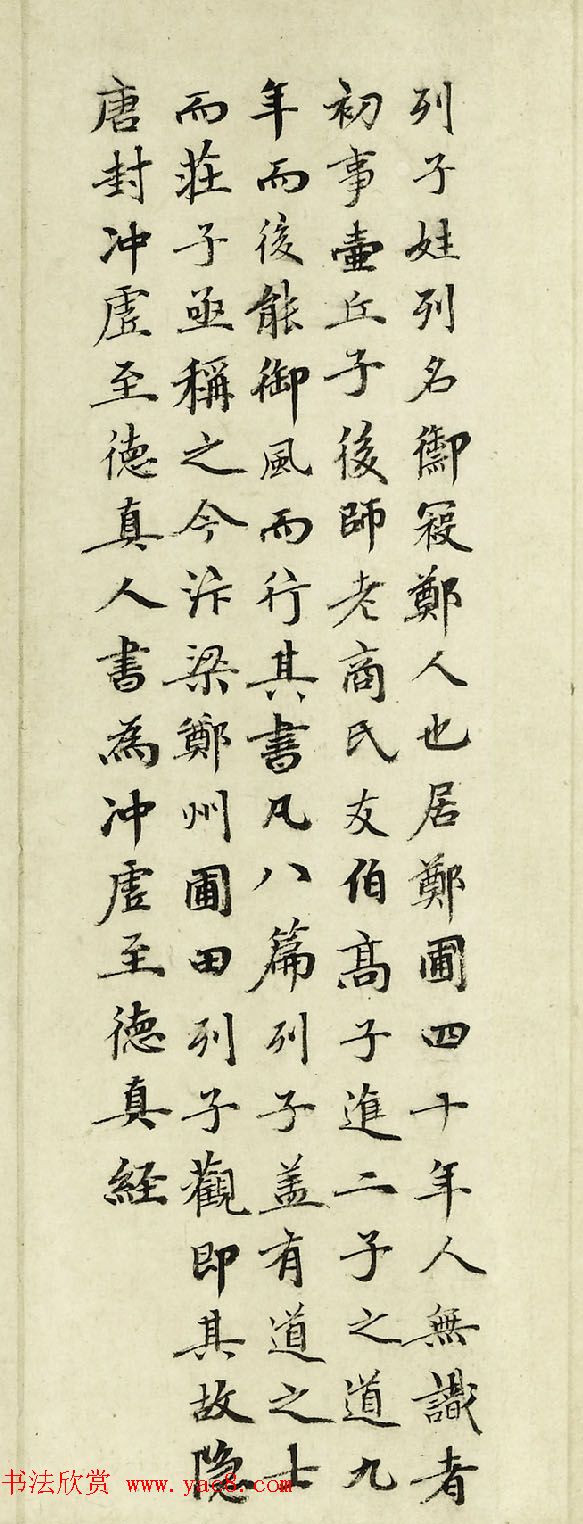 列子姓列名禦寇鄭人也居鄭圃四十年人無識者
初事壷丘子後師老商氏友伯髙子進二子之道九
年而後能御風而行其書凡八篇列子盖有道之士
而莊子亟稱之今汴梁鄭州圃田列子觀即其故隐
唐封冲虚至徳真人書為冲虚至徳真経
书法欣赏 www.yac8.com